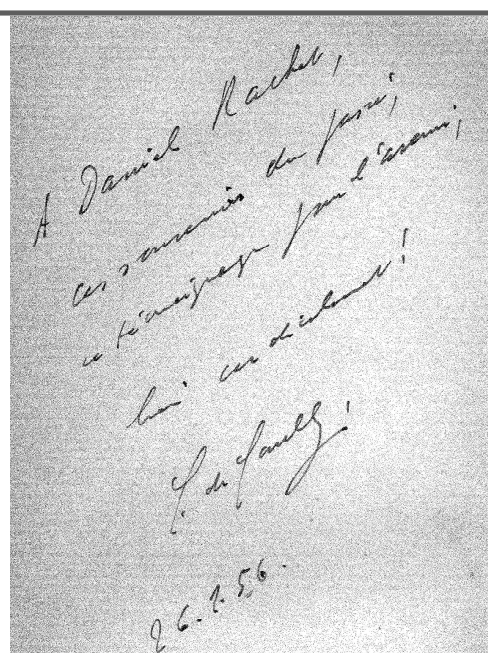 A Daniel Rachet,
ces souvenirs du passé,
ce témoignage pour l'avenir,
bien cordialement !
C. de Gaulle
26.1.56.